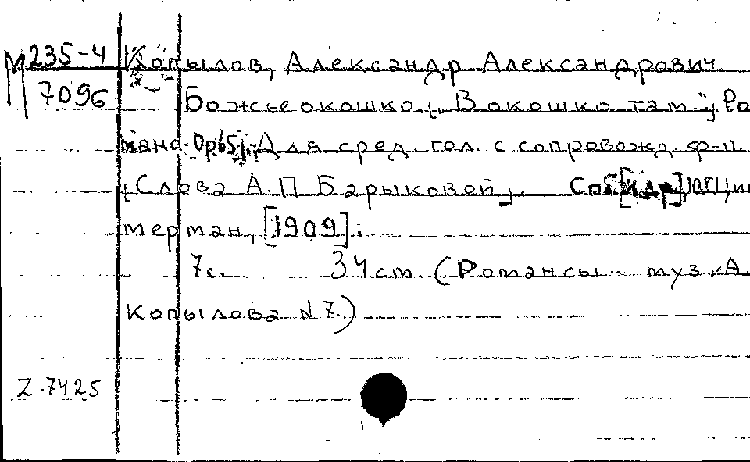 М 235-4 Копылов, Александр Александрович
7096 Божье окошко. „В окошко там". Ро
манс. Ор. 51. Для сред. гол. с сопровожд. ф-п
Слова А. П. Барыковой. Спб. [и др.] Ю. Г. Цим
мерман, [1909].
7 с. 34 см. (Романсы муз. А.
Копылова N 7.)
Z-7425